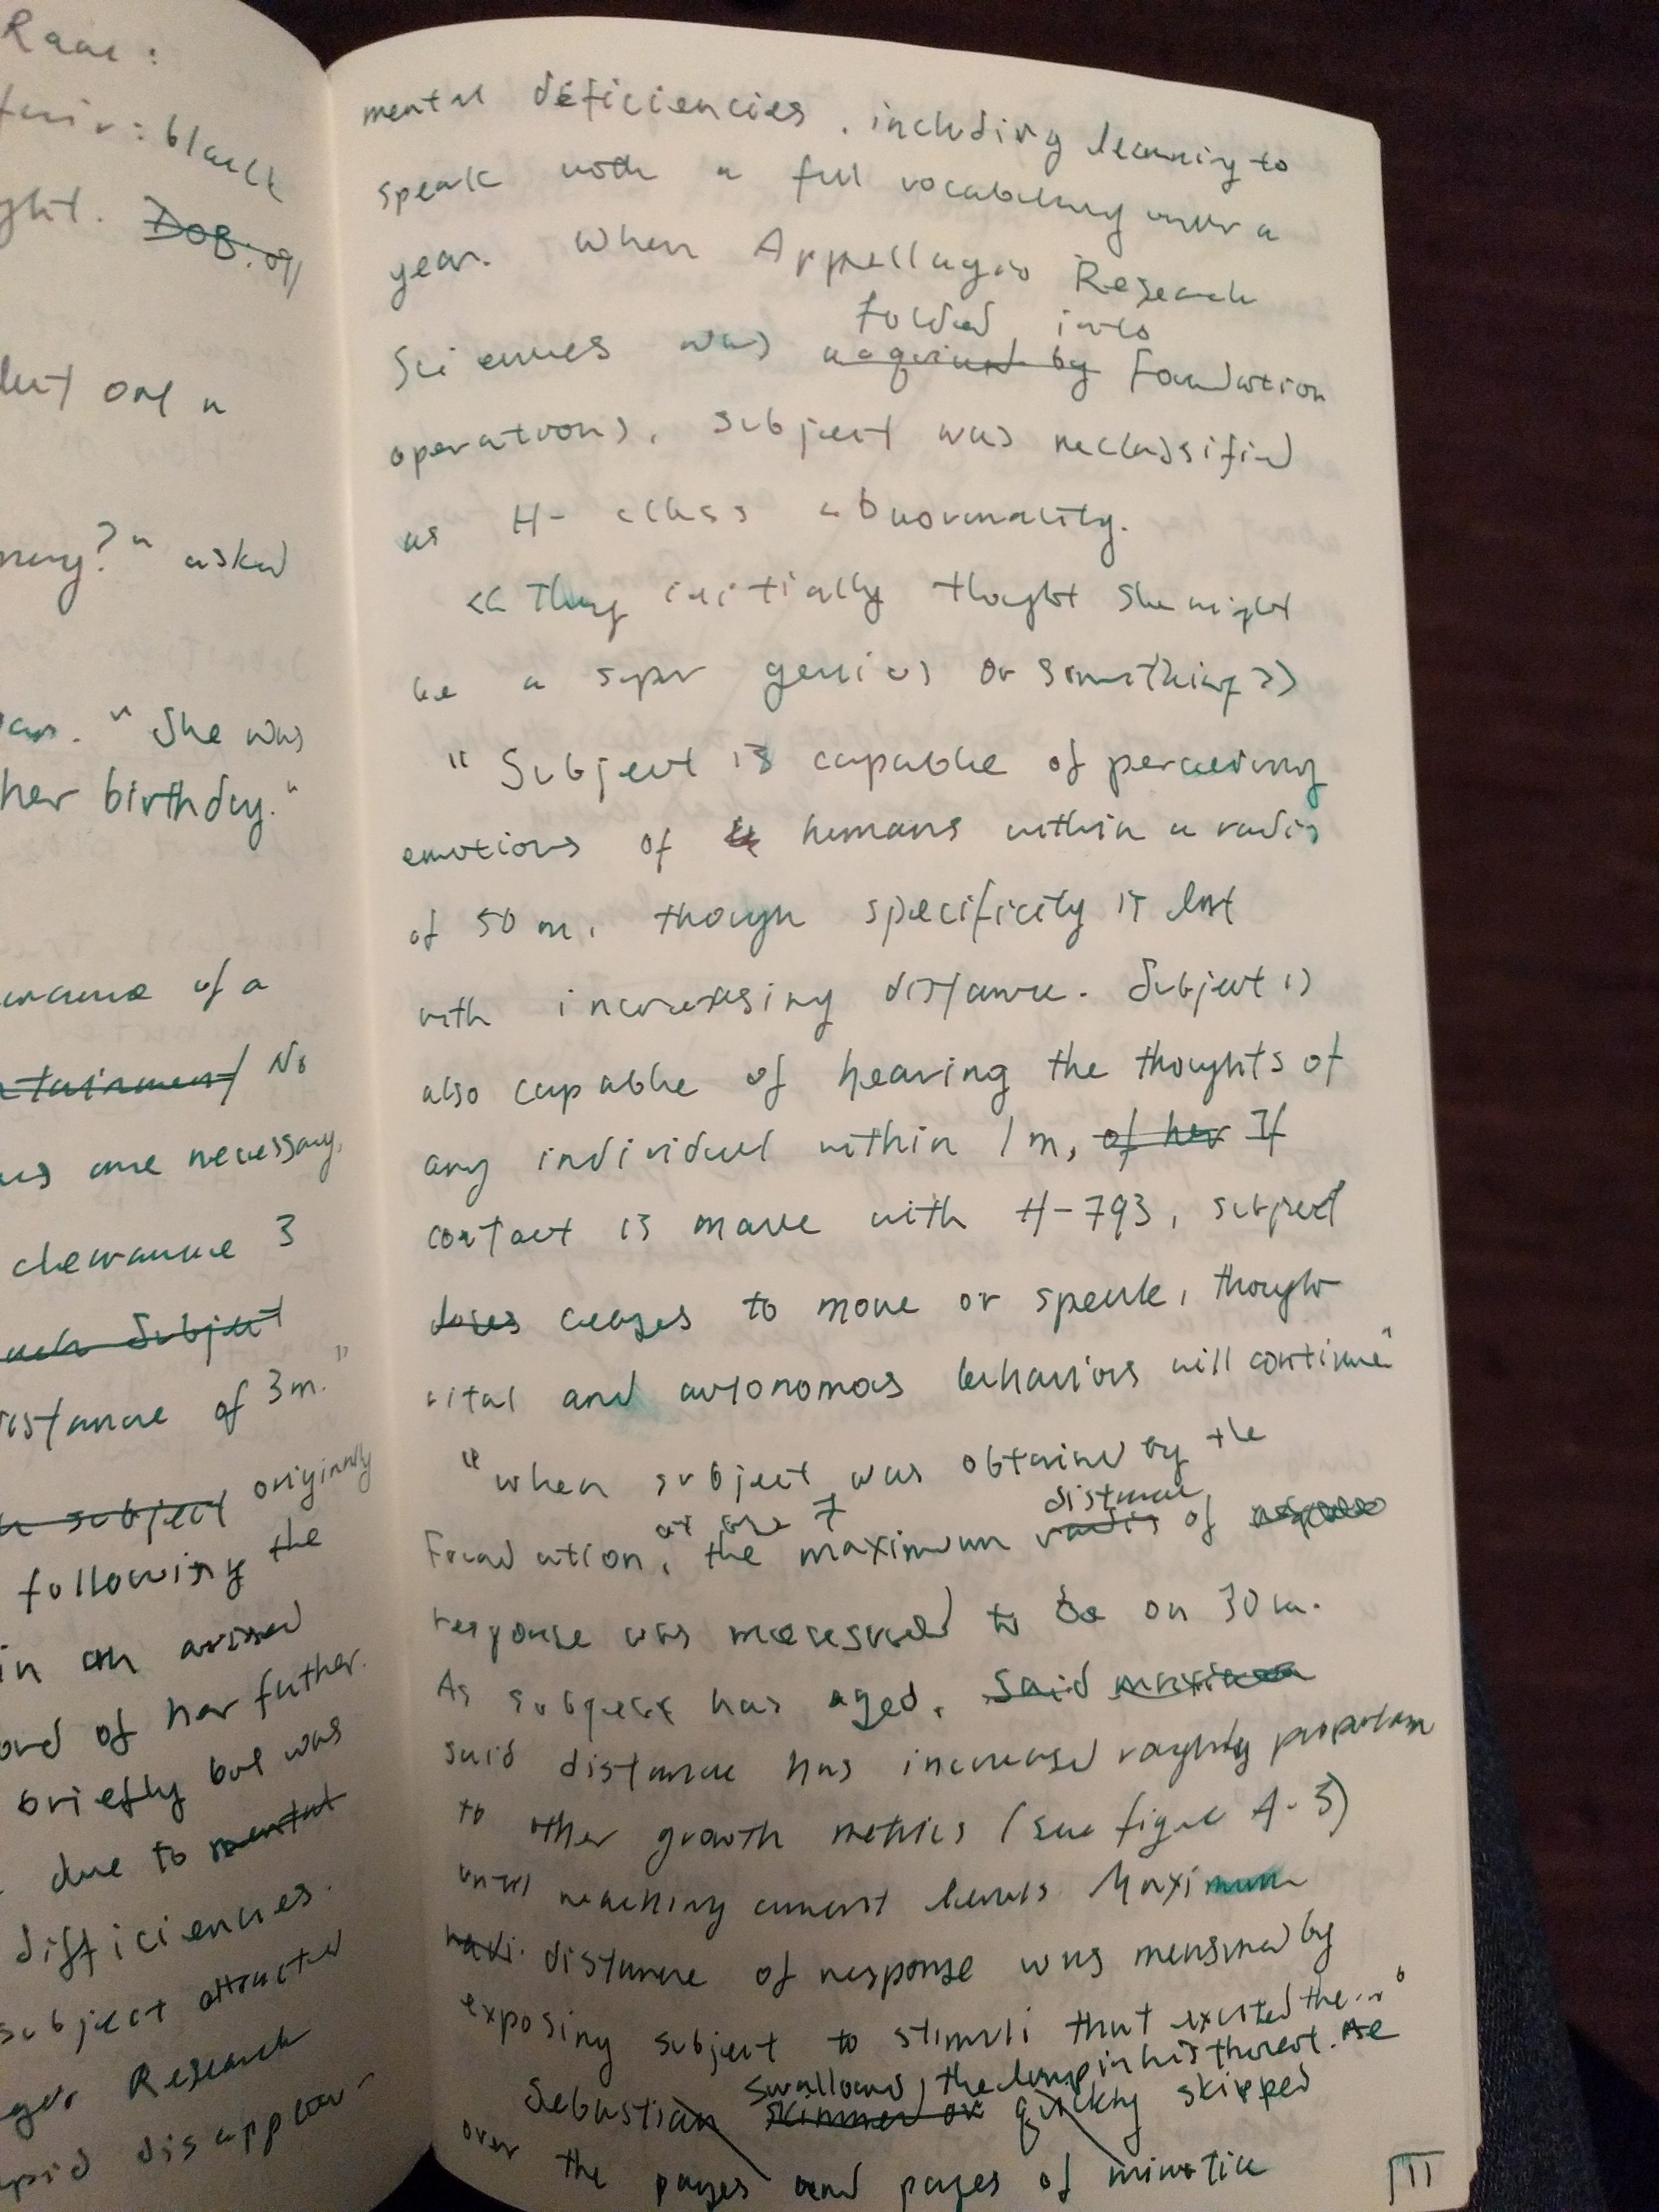 Race:
hair: black
ght. DOB: 09/
out on a
?" asked
. "She was
her birthday."
of a
tainment No
are necessary,
clearance 3
Subject
distance of 3m."
subject originally
following the
in an
of her father.
briefly but was
due to mental
difficiencies.
subject attracted
Research
disappear-
mental deficiencies, including learning to
speak with a full vocabulary under a
year. When Research
folded into
Sciences was acquired by Foundation
operations, subject was reclassified
as H-class abnormality.
<< They initially thought she might
be a super genius or something >>
"Subject is capable of perceiving
emotions of humans within a radis
of 50 m, though specificity is lost
with increasing distance. Subject is
also capable of hearing the thoughts of
any individual within 1m, of her If
contact is made with H-793, subject
does ceases to move or speak, though
vital and autonomous behaviors will continue"
"When subject was obtained by the
at age 7 distance
Foundation, the maximum radis of
response was measured to be on 30 m.
As subject has aged, said maximum
said distance has increased roughly proportion
to other growth metrics (see figure A-3)
until reaching current levels. Maximum
radi. distance of response was measured by
exposing subject to stimuli that excited the..."
swallowed the lump in his throat. He
Sebastian skimmed ov quickly skipped
over the pages and pages of minutia